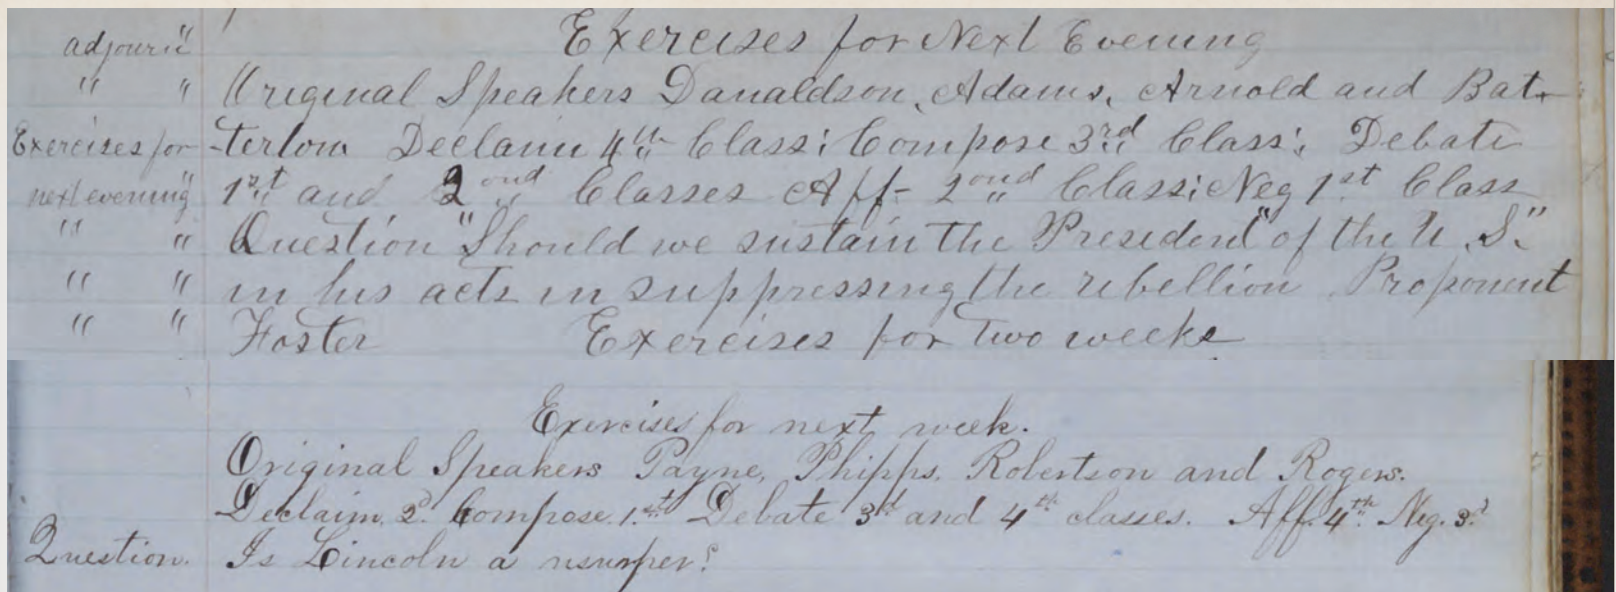 adjour'd Exercises for Next Evening
" " Original Speakers Danaldson, Adams, Arnold and Bat-
Exercises for -terlow Declaim 4th Class; Compose 3rd Class; Debate
next evening 1st and 2ond Classes Aff- 2ond Class; Neg 1st Class
" " Question "Should we sustain the President" of the U.S."
" " in his acts in suppressing the rebellion. Proponent
" " Foster Exercises for Two weeks
Exercises for next week.
Original Speakers Payne, Phipps, Robertson and Rogers.
Declaim. 2d. Compose. 1st Debate 3d and 4th classes. Aff. 4th Neg. 3d
Question. Is Lincoln a usurper?